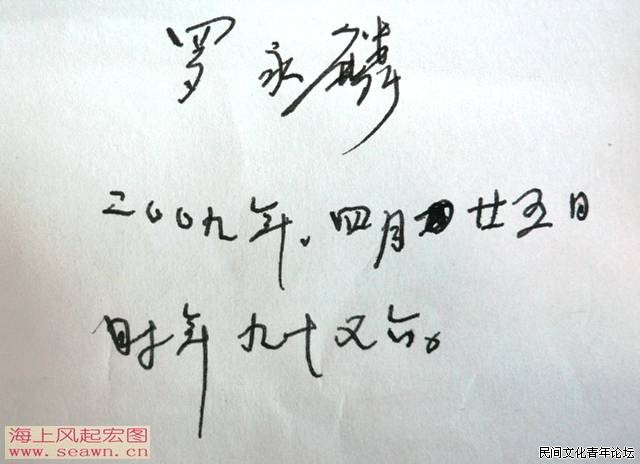 罗永麟
二〇〇九年。四月廿五日
时年九十又六。
海上风起宏图
www.seawn.cn
民间文化青年论坛